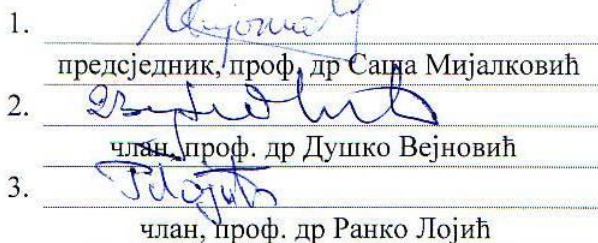 1.
предсједник, проф. др Саша Мијалковић
2.
члан, проф. др Душко Вејновић
3.
члан, проф. др Ранко Лојић